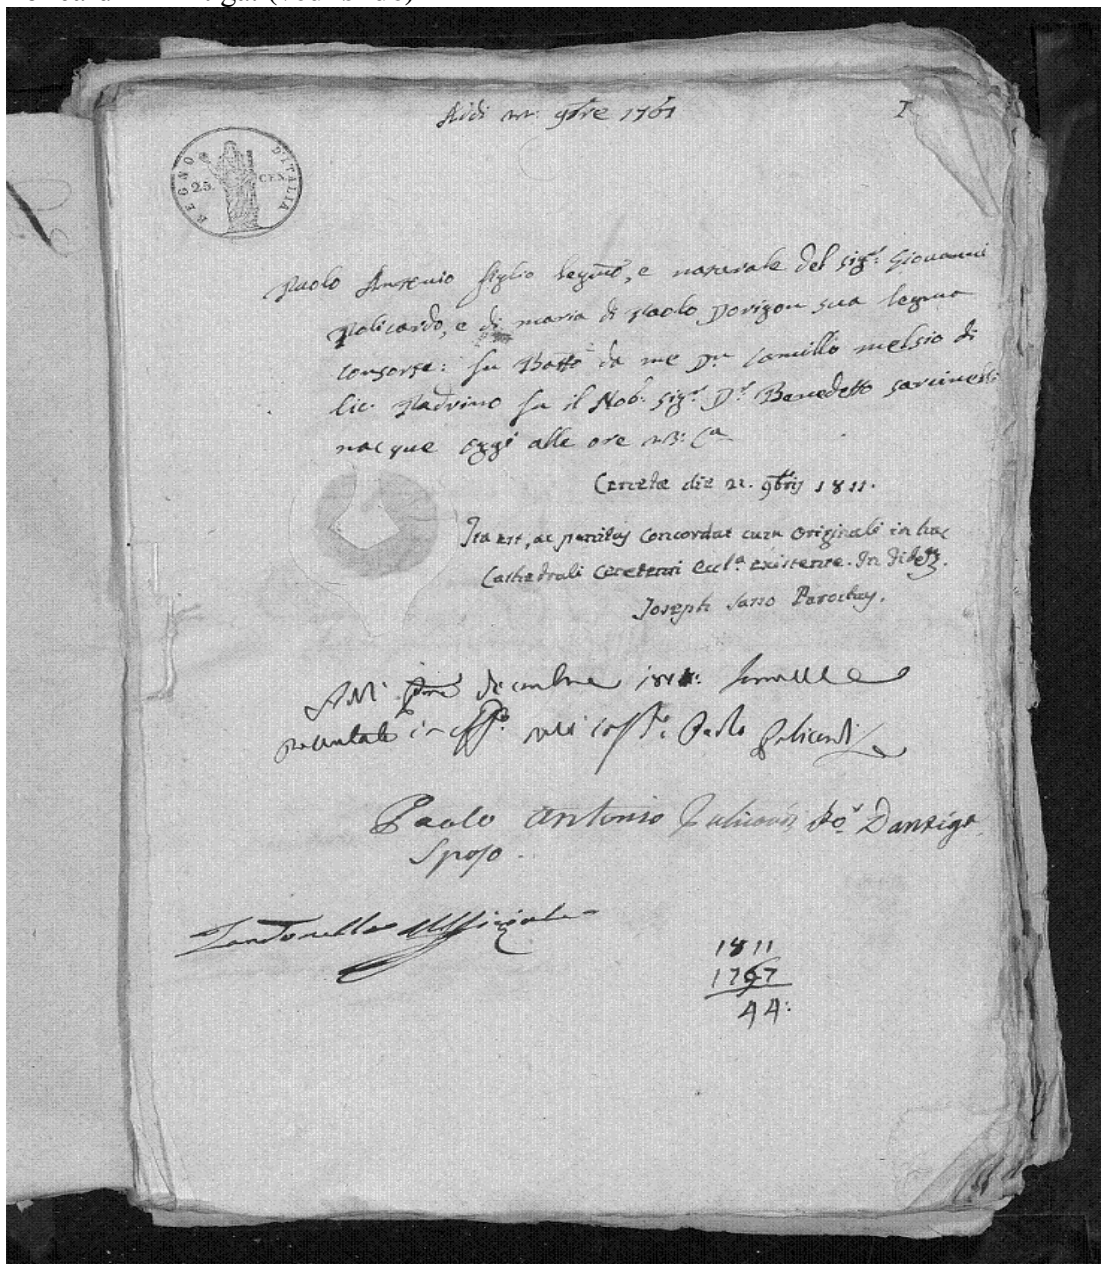 Addi 9bre 1761
1
REGNO D'ITALIA
25. CEN.
Paolo Antenio figlio legmo, e naturale del sigr. Giovanni
Policardo, e di maria di Paolo Dorigon sua legma
consorte: fu Batto da me Dn Camillo melsio di
lic. Padrino fu il Nob. sigr. Dr. Benedetto sarcinelli
nacque oggi alle ore Ca
Cenetæ die 21. 9bris 1811.
Ita est, ac penitus concordat cum originali in hac
Cathedrali Cenetensi Eccl.a existente. In
Joseph Parochus.
decembre
presentato in Paolo Policardi
Paolo Antonio Policardi Dantiga
Sposo.
1811
1767
44: